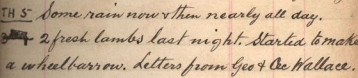 TH 5 Some rain now & then nearly all day.
2 fresh lambs last night. Started to make
a wheelbarrow. Letters from Geo & Wallace.